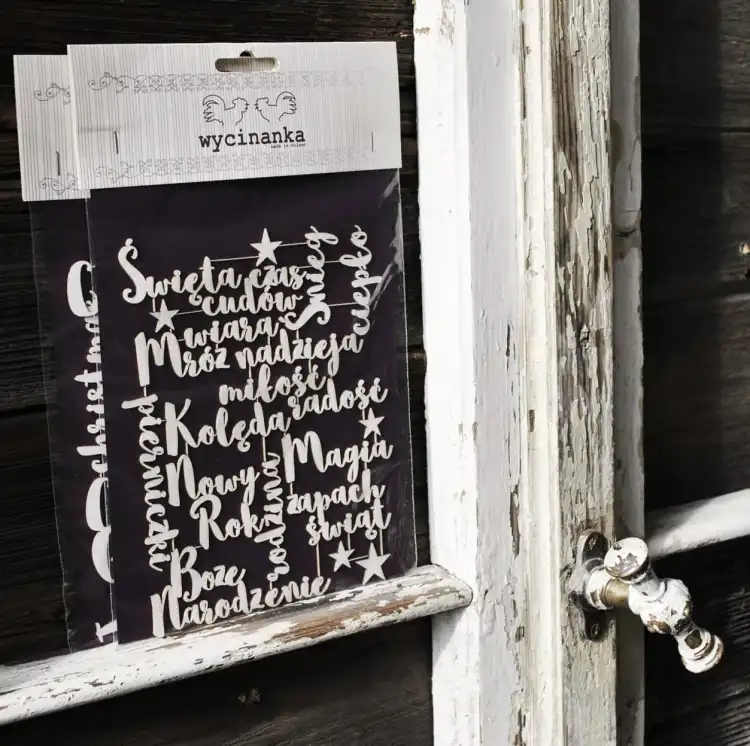 wycinanka
made in Poland
Święta czas
cudów
Śnieg
ciepło
wiara
Mróz nadzieja
miłość
radość
Kolęda
pierniczki
Nowy
Rok
rodzina
Magia
zapach
świąt
Boże
Narodzenie
christmas